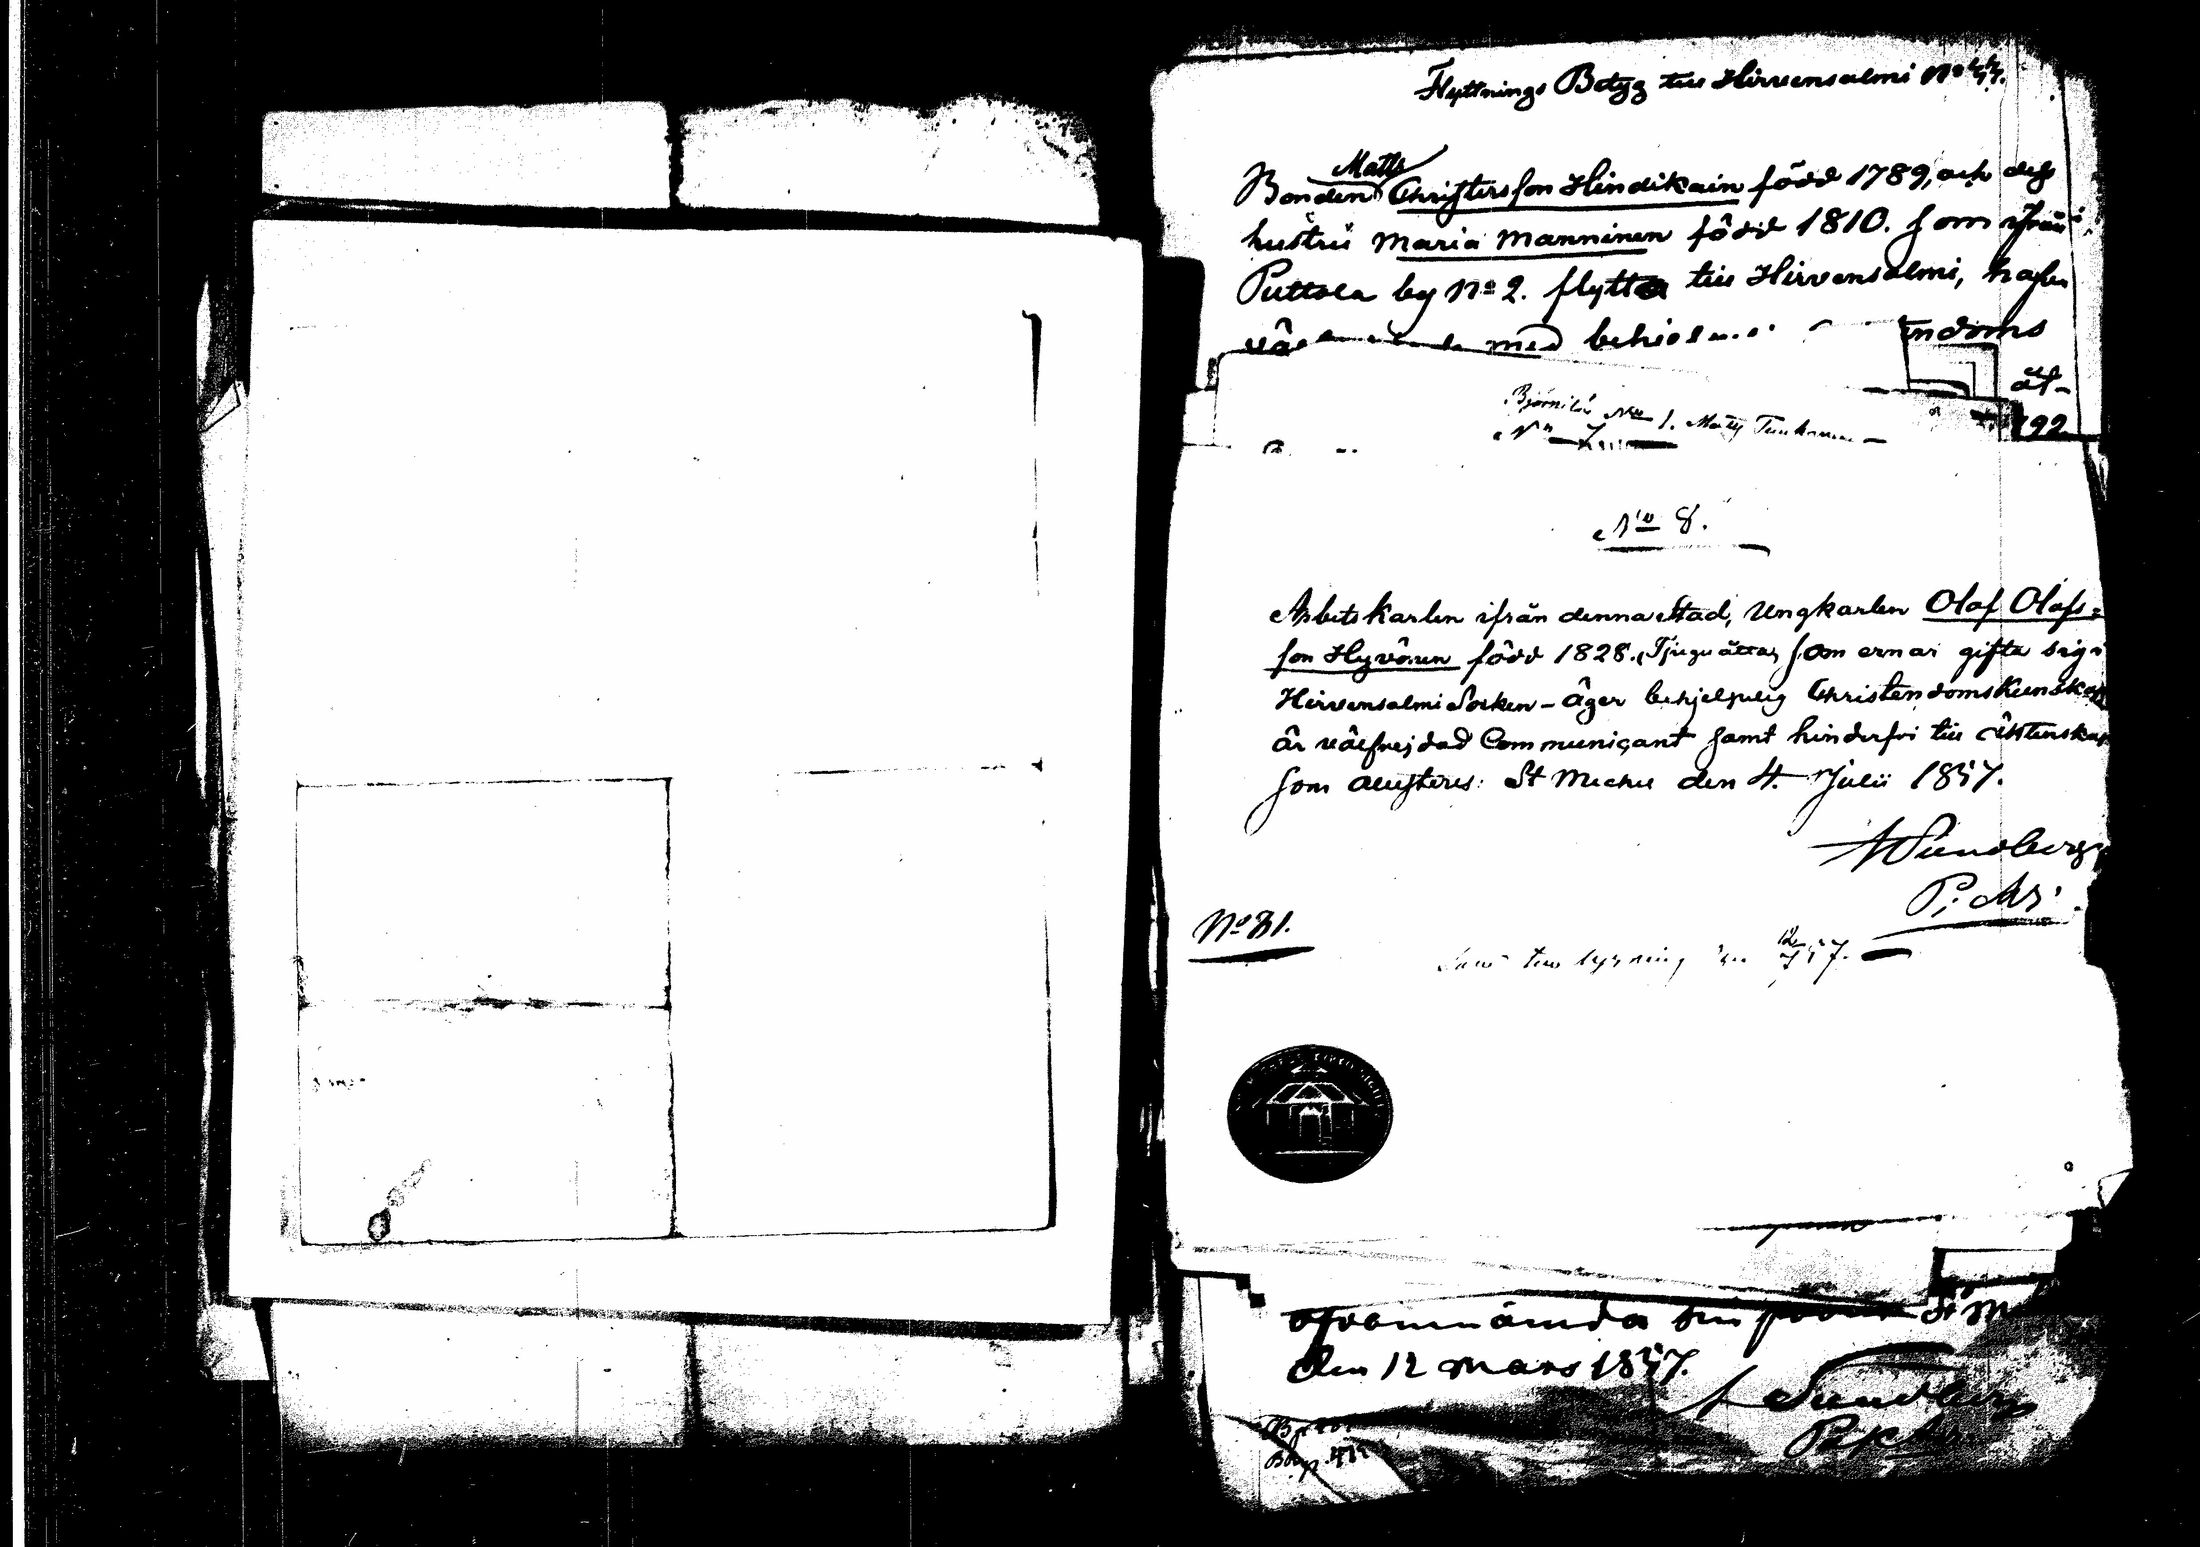 Flyttnings Betyg till Hirvensalmi No 44.
Matts
Bonden Christersson Hindikain född 1789, och dess
hustru Maria Manninen född 1810. som ifrån
Puttola by No 2. flytta till Hirvensalmi, hafva
med ndoms
åt-
192
No 1. Matts
No 8.
Arbetskarlen ifrån denna Stad, Ungkarlen Olof Olofs=
son Hyvönen född 1828. (Tjuguåtta) som ernar gifta sig i
Hirvensalmi Socken - äger behjelpelig Christendomskunskap
är välfrejdad Communicant samt hinderfri till äktenskap
som attesteras: St Michel den 4. Julii 1857.
A Sundberg
No 31.
till lysning den 12/7 57.
ofvannämda St M
den 12 Mars 1857.
A Sundberg